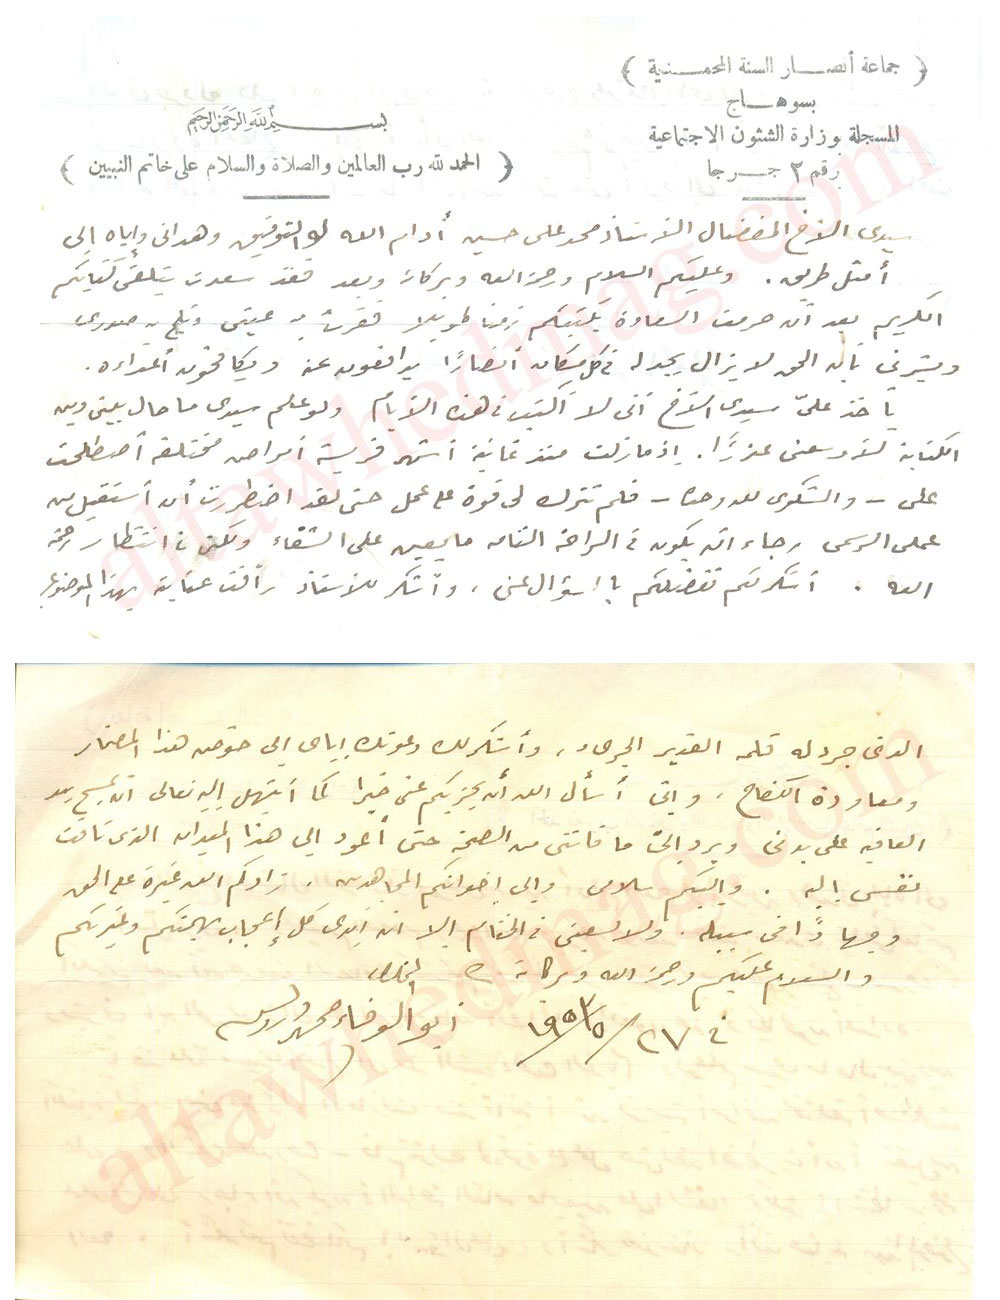 ( جماعة أنصار السنة المحمدية )
بسوهاج
المسجلة بوزارة الشئون الاجتماعية
رقم ٢ جرجا
بسم الله الرحمن الرحيم
( الحمد لله رب العالمين والصلاة والسلام على خاتم النبيين )
سيدى الأخ المفضال الأستاذ محمد على حسين أدام الله له التوفيق وهدانى وإياه إلى
أمثل طريق . وعليكم السلام ورحمة الله وبركاته وبعد فقد سعدت بتلقى كتابكم
الكريم بعد أن حرمت السعادة بكتبكم زمنا طويلا فقرت به عينى وثلج به صدرى
وبشرنى بأن الحق لا يزال يجد له فى كل مكان أنصارًا يدافعون عنه ويكافحون أعداءه .
يأخذ علىّ سيدى الأخ أنى لا أكتب فى هذه الأيام ولو علم سيدى ما حال بينى وبين
الكتابة لأوسعنى عذرًا . إذ مازلت منذ ثمانية أشهر فريسة أمراض مختلفة أصطلحت
على - والشكوى لله وحده - فلم تترك لى قوة على عمل حتى لقد اضطررت أن أستقيل من
عملى الرسمى رجاء أن يكون فى الراحة التامة ما يعين على الشفاء ولكنى فى انتظار رحمة
الله . أشكر لكم تفضلكم بالسؤال عنى ، وأشكر للأستاذ رأفت عنايته بهذا الموضوع
الذى جرد له قلمه القدير الجرىء ، وأشكر لك دعوتك إياى إلى خوض هذا المضمار
ومعاودة الكفاح ، وإنى أسأل الله أن يجزيكم عنى خيرا كما أبتهل إليه تعالى أن يمسح بيد
العافية على بدنى ويرد إلىّ ما فاتنى من الصحة حتى أعود إلى هذا الميدان الذى تاقت
نفسى إليه . وإليكم سلامى وإلى إخوانكم المجاهدين . زادكم الله غيرة على الحق
وجهادًا فى سبيله . ولا يسعنى فى الختام إلا أن أبدى كل إعجاب بهمتكم وغيرتكم
والسلام عليكم ورحمة الله وبركاته المخلص
فى ٢٧/٥/١٩٥٣ أبو الوفاء محمد درويش
altawhedmag.com
altawhedmag.com